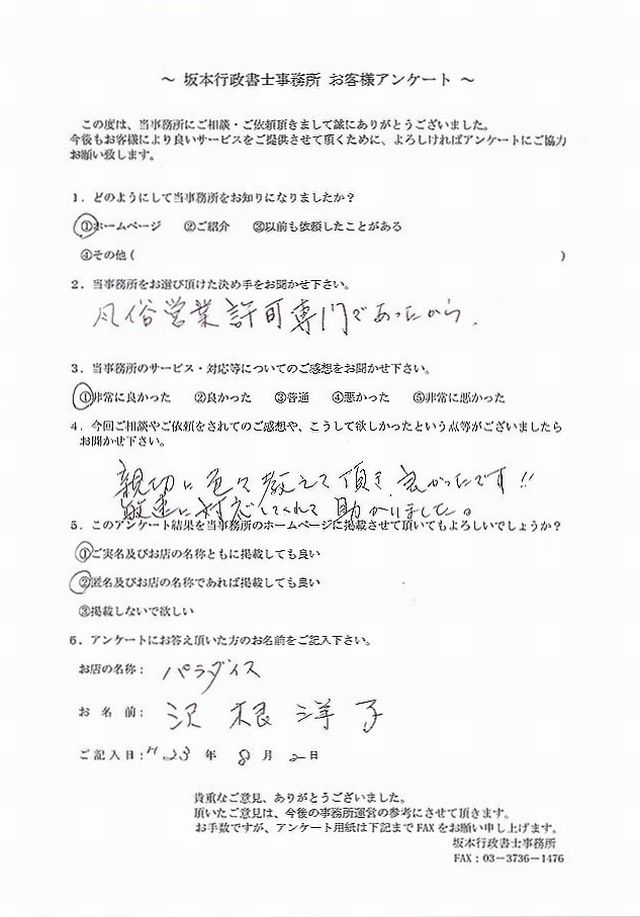 ～ 坂本行政書士事務所 お客様アンケート ～
この度は、当事務所にご相談・ご依頼頂きまして誠にありがとうございました。
今後もお客様により良いサービスをご提供させて頂くために、よろしければアンケートにご協力
お願い致します。
1．どのようにして当事務所をお知りになりましたか？
①ホームページ ②ご紹介 ③以前も依頼したことがある
④その他（ ）
2．当事務所をお選び頂けた決め手をお聞かせ下さい。
風俗営業許可専門であったから.
3．当事務所のサービス・対応等についてのご感想をお聞かせ下さい。
①非常に良かった ②良かった ③普通 ④悪かった ⑤非常に悪かった
4．今回ご相談やご依頼をされてのご感想や、こうして欲しかったという点等がございましたら
お聞かせ下さい。
親切に色々教えて頂き良かったです!!
敏速に対応してくれて助かりました。
5．このアンケート結果を当事務所のホームページに掲載させて頂いてもよろしいでしょうか？
①ご実名及びお店の名称ともに掲載しても良い
②匿名及びお店の名称であれば掲載しても良い
③掲載しないで欲しい
6．アンケートにお答え頂いた方のお名前をご記入下さい。
お店の名称： パラダイス
お 名 前： 沢根洋子
ご記入日：H23 年 8 月 2 日
貴重なご意見、ありがとうございました。
頂いたご意見は、今後の事務所運営の参考にさせて頂きます。
お手数ですが、アンケート用紙は下記まで FAX をお願い申し上げます。
坂本行政書士事務所
FAX：03-3736-1476